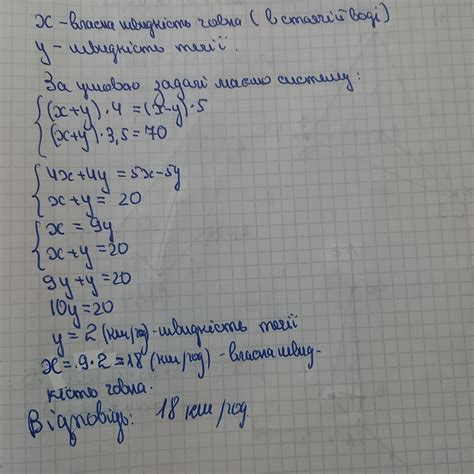 x - власна швидкість човна (в стоячій воді)
y - швидкість течії.
За умовою задачі маємо систему:
{(x+y)·4=(x-y)·5
{(x+y)·3,5=70
{4x+4y=5x-5y
{x+y=20
{x=9y
{x+y=20
9y+y=20
10y=20
y=2 (км/год)-швидкість течії
x=9·2=18 (км/год) - власна швид-
кість човна.
Відповідь: 18 км/год